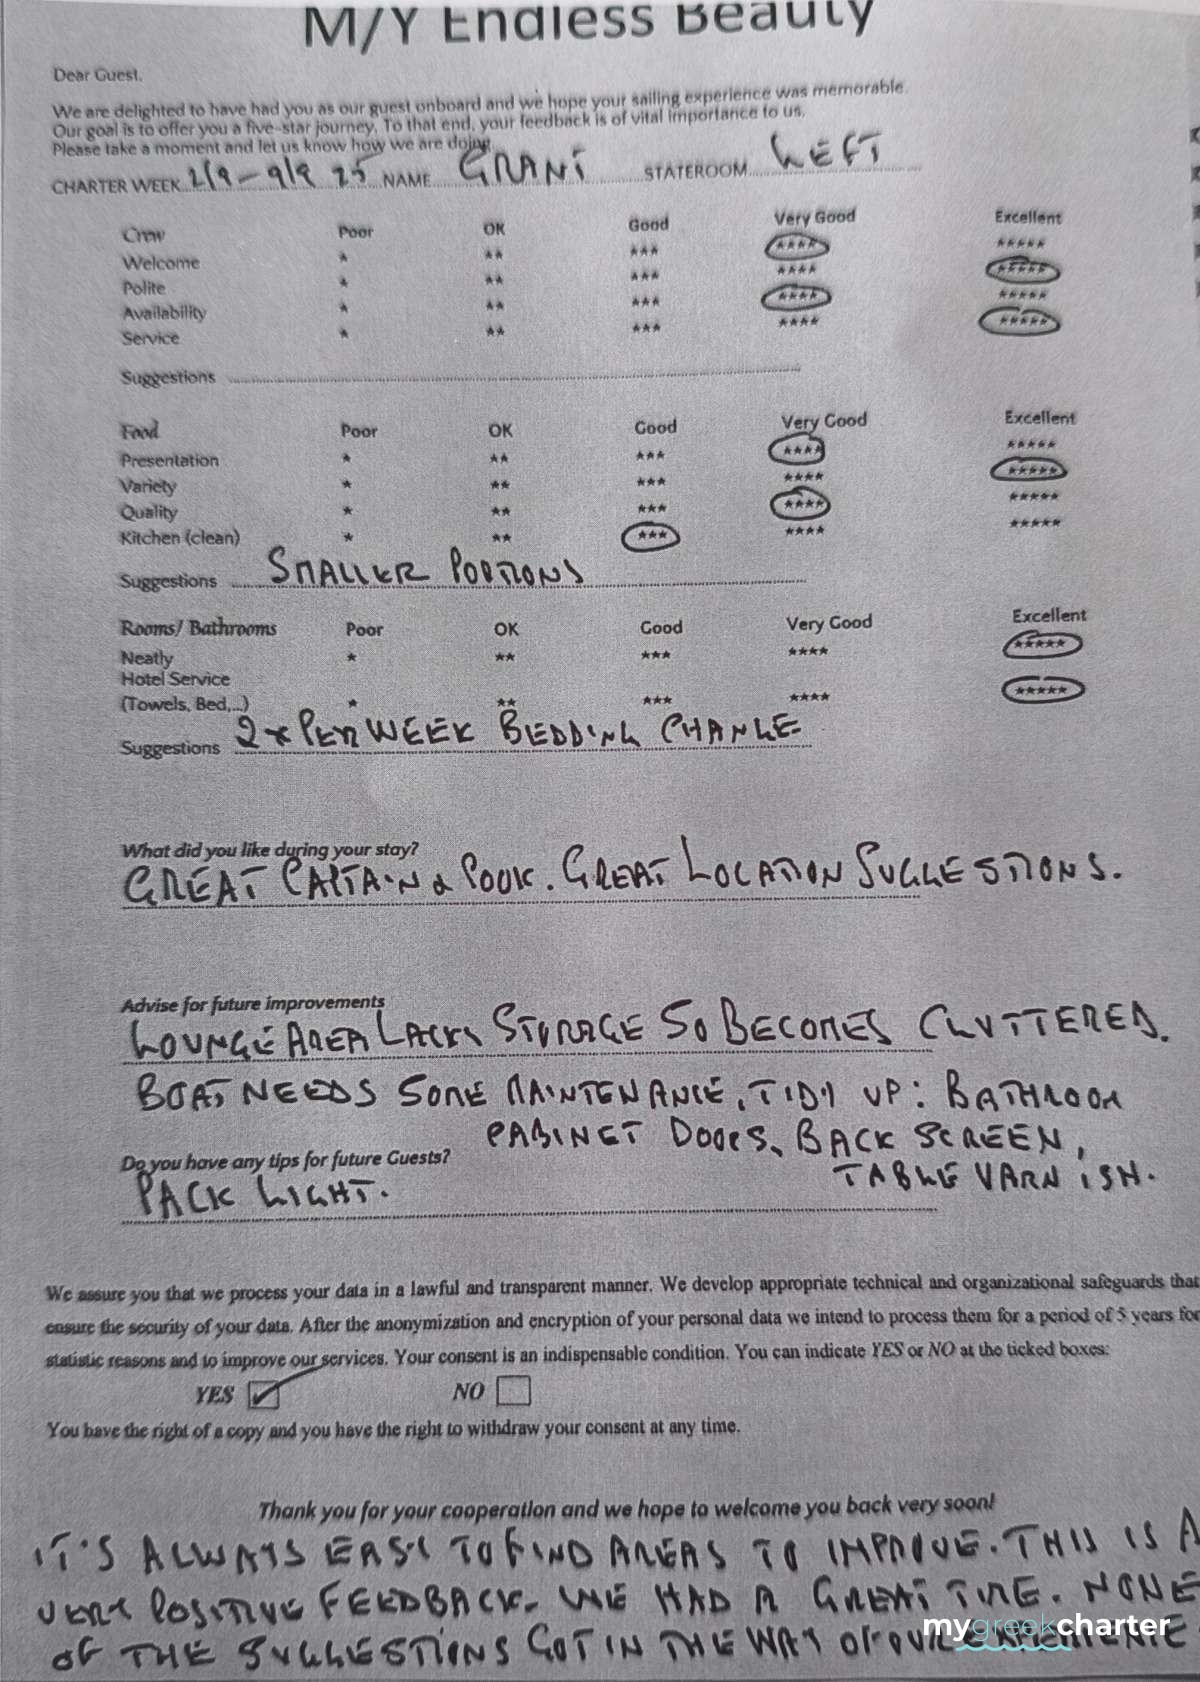 M/Y Endless Beauty
Dear Guest,
We are delighted to have had you as our guest onboard and we hope your sailing experience was memorable.
Our goal is to offer you a five-star journey. To that end, your feedback is of vital importance to us.
Please take a moment and let us know how we are doing.
CHARTER WEEK 2/9 - 9/9 25 NAME GRANT STATEROOM LEFT
Crew Poor OK Good Very Good Excellent
Welcome * ** *** **** *****
Polite * ** *** **** *****
Availability * ** *** **** *****
Service * ** *** **** *****
Suggestions
Food Poor OK Good Very Good Excellent
Presentation * ** *** **** *****
Variety * ** *** **** *****
Quality * ** *** **** *****
Kitchen (clean) * ** *** **** *****
Suggestions SMALLER PORTIONS
Rooms/ Bathrooms Poor OK Good Very Good Excellent
Neatly * ** *** **** *****
Hotel Service
(Towels, Bed,...) * ** *** **** *****
Suggestions 2x PER WEEK BEDDING CHANGE
What did you like during your stay?
GREAT CAPTAIN & COOK. GREAT LOCATION SUGGESTIONS.
Advise for future improvements
LOUNGE AREA LACKS STORAGE SO BECOMES CLUTTERED.
BOAT NEEDS SOME MAINTENANCE, TIDY UP: BATHROOM
CABINET DOORS, BACK SCREEN,
Do you have any tips for future Guests?
TABLE VARNISH.
PACK LIGHT.
We assure you that we process your data in a lawful and transparent manner. We develop appropriate technical and organizational safeguards that
ensure the security of your data. After the anonymization and encryption of your personal data we intend to process them for a period of 5 years for
statistic reasons and to improve our services. Your consent is an indispensable condition. You can indicate YES or NO at the ticked boxes:
YES NO
You have the right of a copy and you have the right to withdraw your consent at any time.
Thank you for your cooperation and we hope to welcome you back very soon!
IT'S ALWAYS EASY TO FIND AREAS TO IMPROVE. THIS IS A
VERY POSITIVE FEEDBACK. WE HAD A GREAT TIME. NONE
OF THE SUGGESTIONS GOT IN THE WAY OF OUR
mygreekcharter